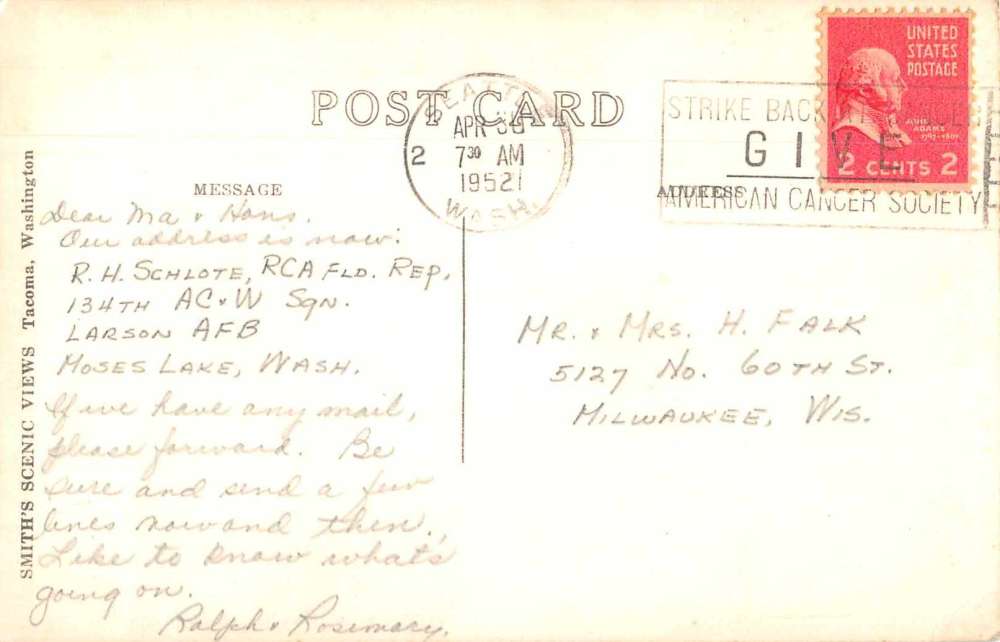 POST CARD
SEATTLE
APR 30
2 7 30 AM
1952
WASH.
STRIKE BACK AT CANCER
GIVE
AMERICAN CANCER SOCIETY
UNITED
STATES
POSTAGE
JOHN
ADAMS
1797-1801
2 CENTS 2
MESSAGE
ADDRESS
Dear Ma & Hans.
Our address is now:
R. H. SCHLOTE, RCA FLD. REP.
134TH AC&W SQN.
LARSON AFB
MOSES LAKE, WASH.
If we have any mail,
please forward. Be
sure and send a few
lines now and then.
Like to know what's
going on.
Ralph & Rosemary.
MR. & MRS. H. FALK
5127 NO. 60TH ST.
MILWAUKEE, WIS.
SMITH'S SCENIC VIEWS Tacoma, Washington